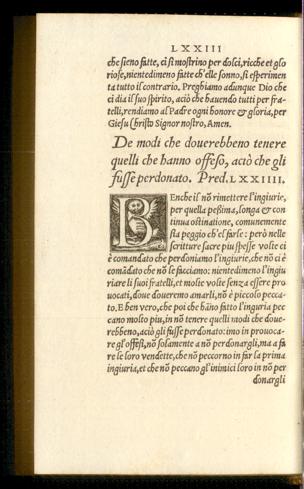 LXXIII
che sieno fatte, ci si mostrino per dolci, ricche et glo
riose, nientedimeno fatte ch'elle sonno, si esperimen
ta tutto il contrario. Preghiamo adunque Dio che
ci dia il suo spirito, aciò che havendo tutti per fra=
telli, rendiamo al Padre ogni honore & gloria, per
Giesu Christo Signor nostro, Amen.
De modi che douerebbeno tenere
quelli che hanno offeso, aciò che gli
fusse perdonato. Pred. LXXIIII.
BEnche il nõ rimettere l'ingiurie,
per quella peßima, longa & con
tinua ostinatione, comunemente
sia peggio ch'el farle: però nelle
scritture sacre piu spesse volte ci
è comandato che perdoniamo l'ingiurie, che nõ ci è
comãdato che nõ le facciamo: nientedimeno l'ingiu
riare li suoi fratelli, et molte volte senza essere pro
uocati, doue doueremo amarli, nõ è piccolo pecca=
to. E ben vero, che poi che hãno fatto l'inguria pec
cano molto piu, in nõ tenere quelli modi che doue=
rebbeno, aciò gli fusse perdonato: imo in prouoca=
re gl'offesi, nõ solamente a nõ perdonargli, ma a fa
re le loro vendette, che nõ peccorno in far la prima
ingiuria, et che nõ peccano gl'inimici loro in nõ per
donargli